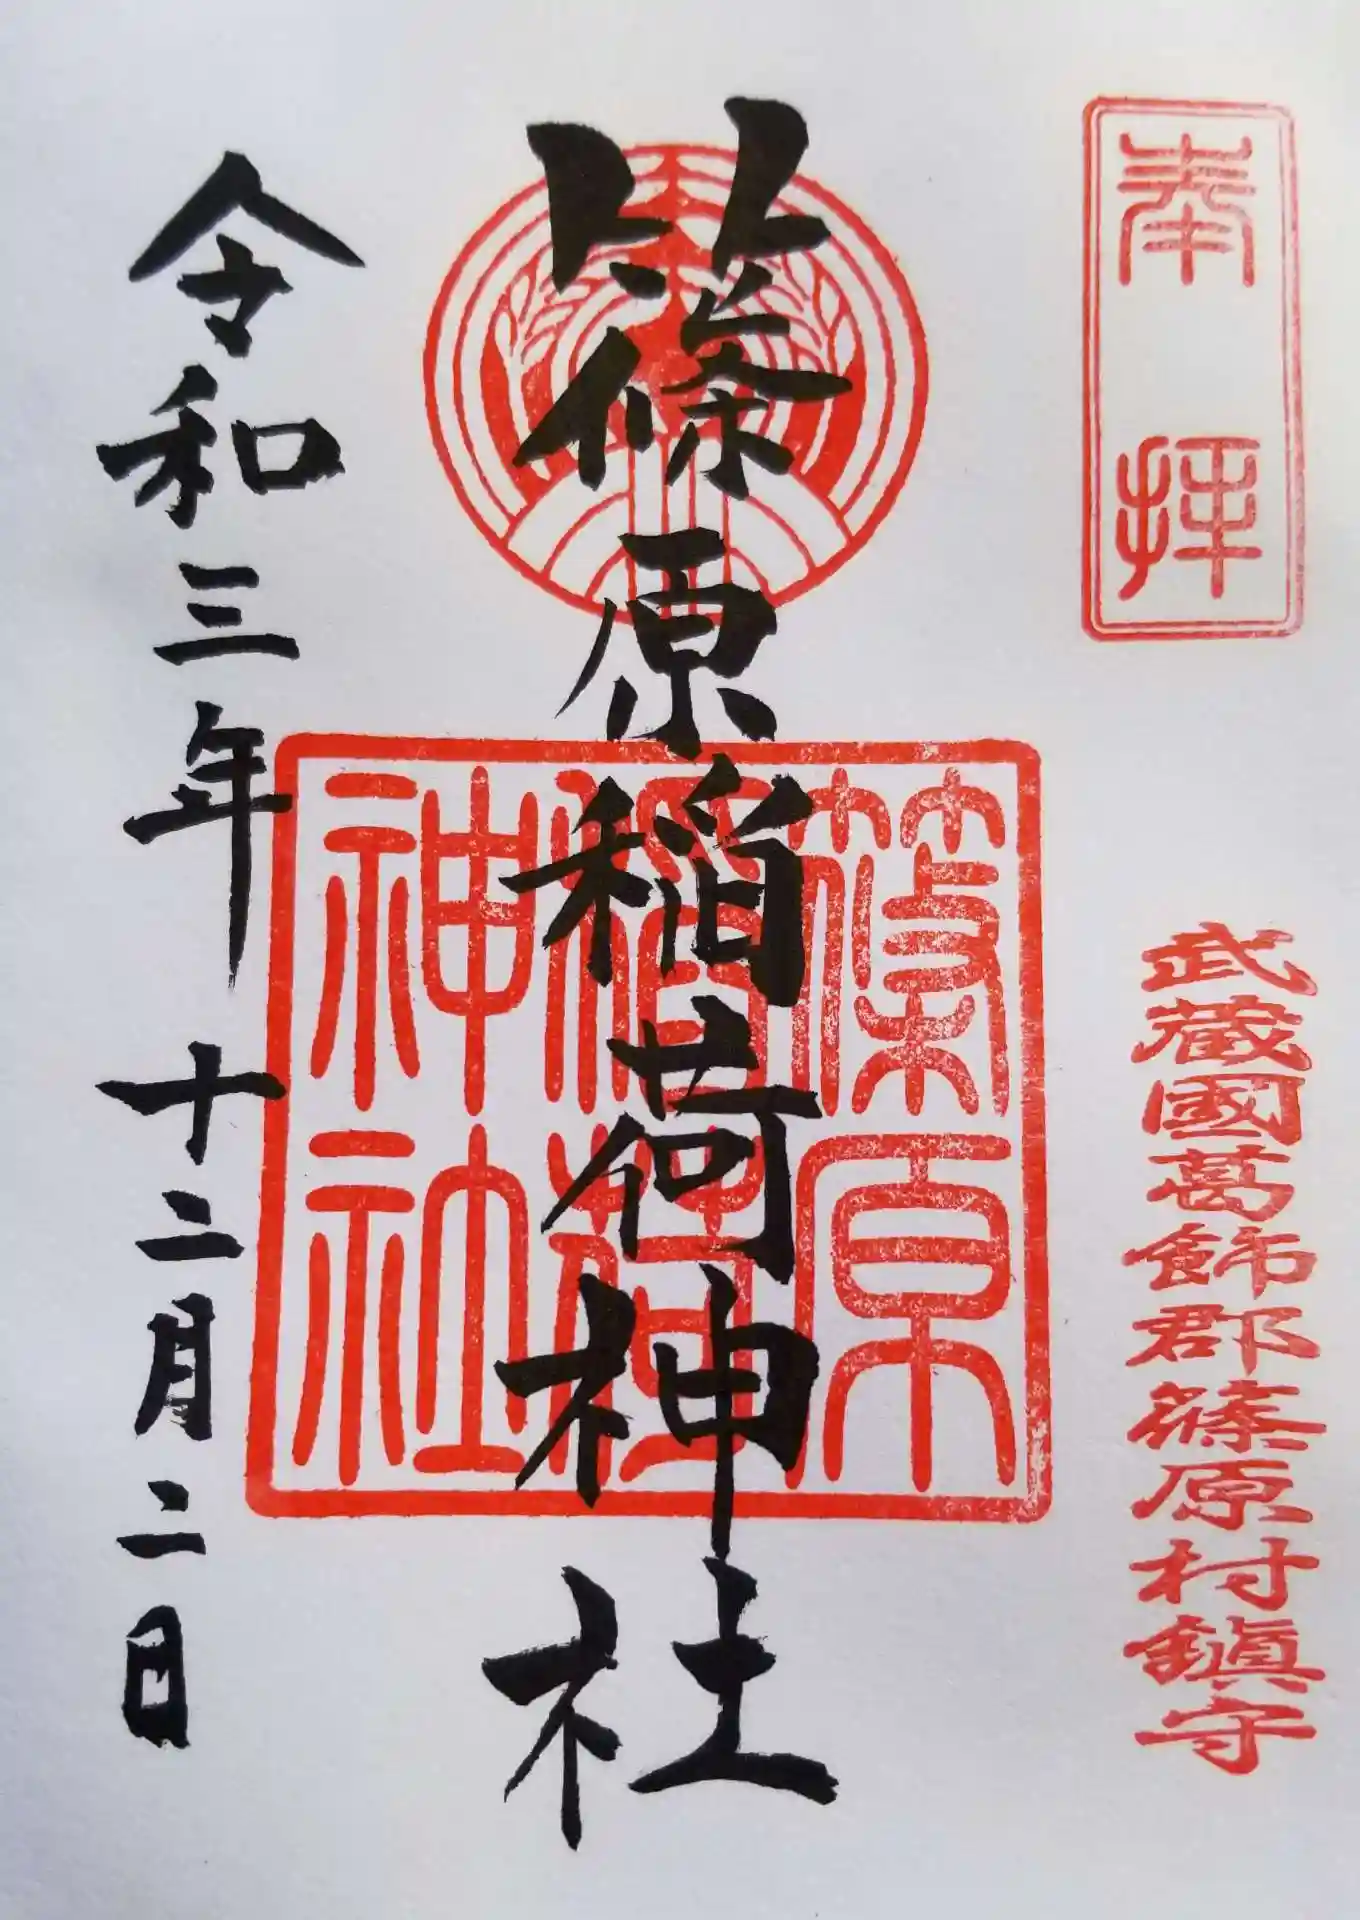 奉拝
武蔵國葛飾郡篠原村鎮守
篠原稲荷神社
篠原
稲荷
神社
令和三年 十二月二日